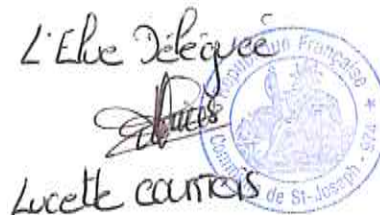 L'Elue Déléguée
Lucette COURTOIS
République Française
Commune de St-Joseph - 974 *